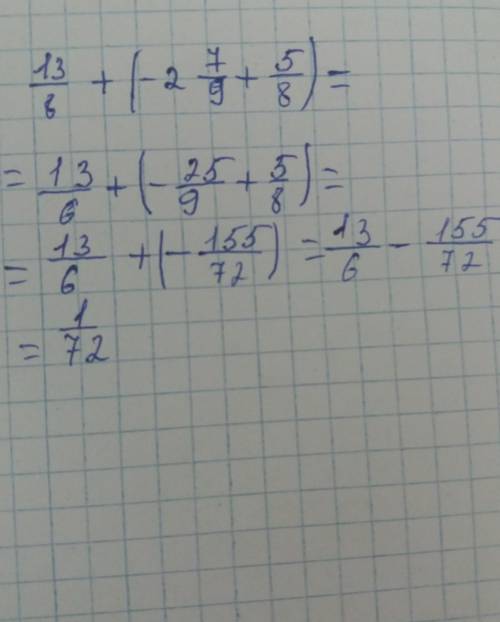 13/8 + (-2 7/9 + 5/8) =
= 13/6 + (-25/9 + 5/8) =
= 13/6 + (-155/72) = 13/6 - 155/72
= 1/72